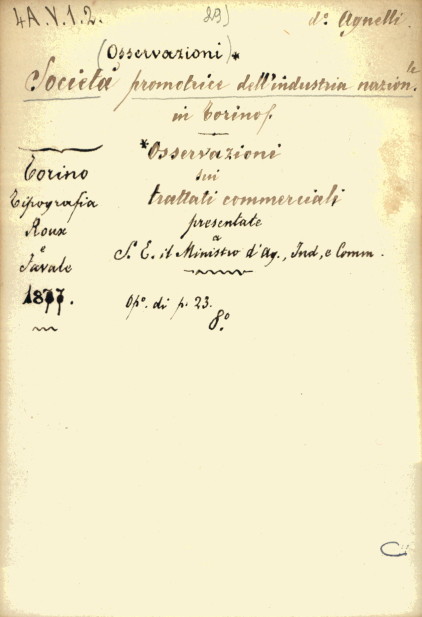 4A.V.1.2. 29) d.º Agnelli
(Osservazioni)*
Società promotrice dell'industria nazion.le
in Torino.
*Osservazioni
sui
trattati commerciali
presentate
a
S. E. il Ministro d'Ag., Ind, e Comm.
Torino
Tipografia
Roux
e
Favale
1877.
Op.º di p. 23.
8.º